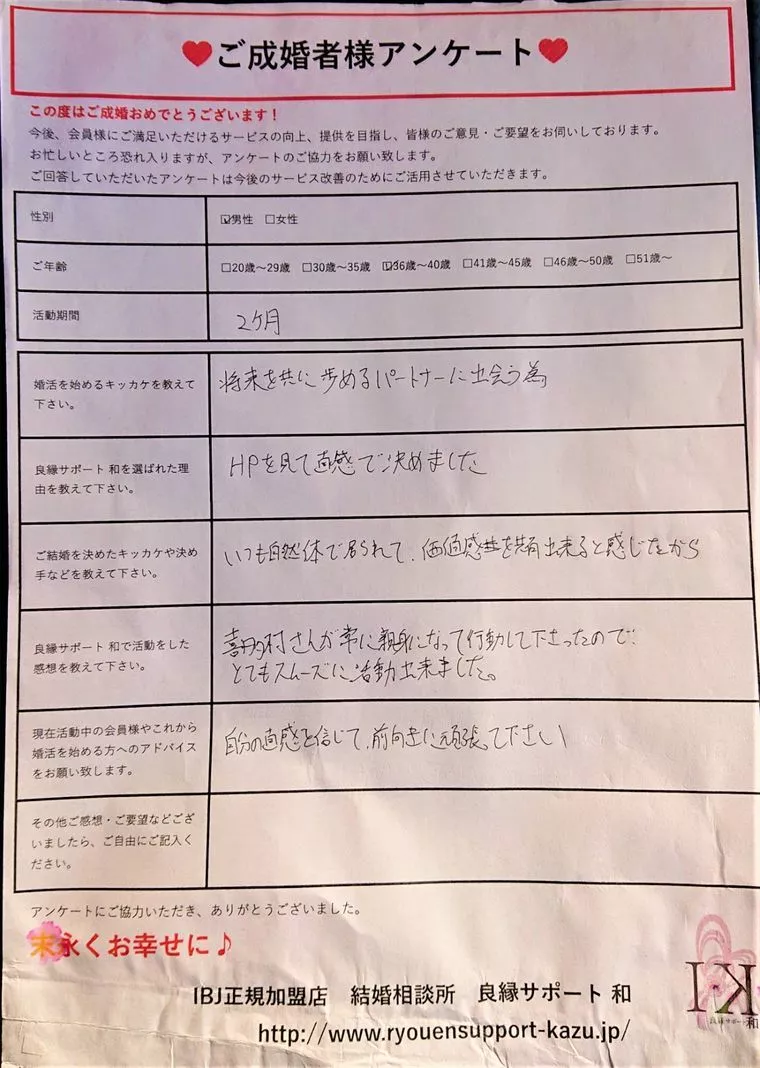 ❤ご成婚者様アンケート❤
この度はご成婚おめでとうございます！
今後、会員様にご満足いただけるサービスの向上、提供を目指し、皆様のご意見・ご要望をお伺いしております。
お忙しいところ恐れ入りますが、アンケートのご協力をお願い致します。
ご回答していただいたアンケートは今後のサービス改善のためにご活用させていただきます。
性別 ☑男性 □女性
ご年齢 □20歳～29歳 □30歳～35歳 ☑36歳～40歳 □41歳～45歳 □46歳～50歳 □51歳～
活動期間 2ヶ月
婚活を始めるキッカケを教えて
下さい。
将来を共に歩めるパートナーに出会う為
良縁サポート 和を選ばれた理
由を教えて下さい。
HPを見て直感で決めました
ご結婚を決めたキッカケや決め
手などを教えて下さい。
いつも自然体で居られて、価値感を共有出来ると感じたから
良縁サポート 和で活動をした
感想を教えて下さい。
喜多村さんが常に親身になって行動して下さったので、
とてもスムーズに活動出来ました。
現在活動中の会員様やこれから
婚活を始める方へのアドバイス
をお願い致します。
自分の直感を信じて、前向きに頑張って下さい
その他ご感想・ご要望などござ
いましたら、ご自由にご記入く
ださい。
アンケートにご協力いただき、ありがとうございました。
末永くお幸せに♪
IBJ正規加盟店 結婚相談所 良縁サポート 和
http://www.ryouensupport-kazu.jp/
良縁サポート和